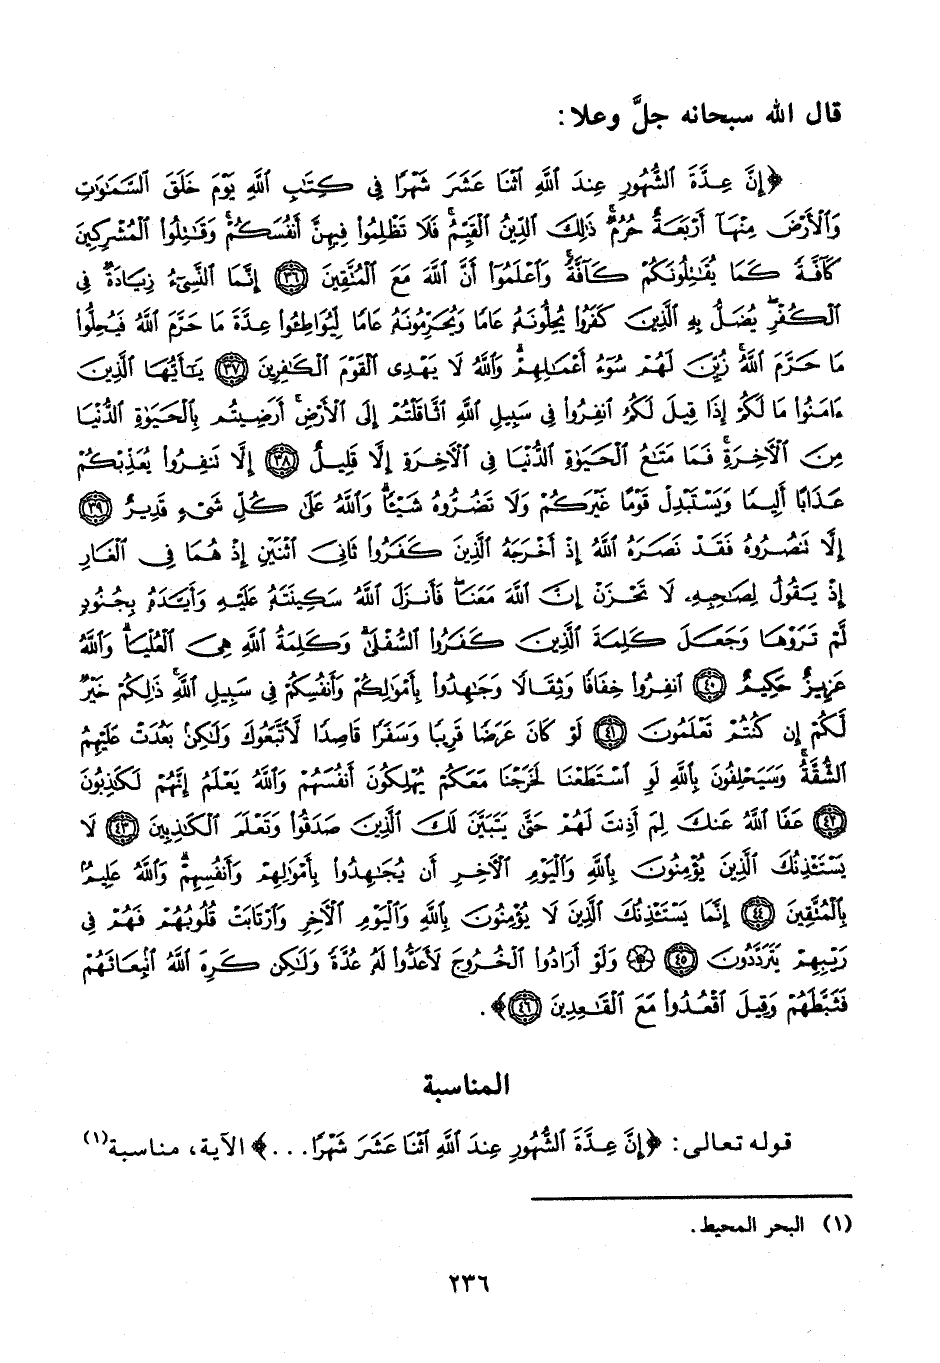 قال الله سبحانه جلَّ وعلا:
﴿إِنَّ عِدَّةَ ٱلشُّهُورِ عِندَ ٱللَّهِ ٱثْنَا عَشَرَ شَهْرًا فِي كِتَٰبِ ٱللَّهِ يَوْمَ خَلَقَ ٱلسَّمَٰوَٰتِ
وَٱلْأَرْضَ مِنْهَآ أَرْبَعَةٌ حُرُمٌۚ ذَٰلِكَ ٱلدِّينُ ٱلْقَيِّمُۚ فَلَا تَظْلِمُوا۟ فِيهِنَّ أَنفُسَكُمْۚ وَقَٰتِلُوا۟ ٱلْمُشْرِكِينَ
كَآفَّةً كَمَا يُقَٰتِلُونَكُمْ كَآفَّةًۚ وَٱعْلَمُوٓا۟ أَنَّ ٱللَّهَ مَعَ ٱلْمُتَّقِينَ ٣٦ إِنَّمَا ٱلنَّسِىٓءُ زِيَادَةٌ فِي
ٱلْكُفْرِۖ يُضَلُّ بِهِ ٱلَّذِينَ كَفَرُوا۟ يُحِلُّونَهُۥ عَامًا وَيُحَرِّمُونَهُۥ عَامًا لِّيُوَاطِـُٔوا۟ عِدَّةَ مَا حَرَّمَ ٱللَّهُ فَيُحِلُّوا۟
مَا حَرَّمَ ٱللَّهُۚ زُيِّنَ لَهُمْ سُوٓءُ أَعْمَٰلِهِمْۗ وَٱللَّهُ لَا يَهْدِى ٱلْقَوْمَ ٱلْكَٰفِرِينَ ٣٧ يَٰٓأَيُّهَا ٱلَّذِينَ
ءَامَنُوا۟ مَا لَكُمْ إِذَا قِيلَ لَكُمُ ٱنفِرُوا۟ فِي سَبِيلِ ٱللَّهِ ٱثَّاقَلْتُمْ إِلَى ٱلْأَرْضِۚ أَرَضِيتُم بِٱلْحَيَوٰةِ ٱلدُّنْيَا
مِنَ ٱلْأَخِرَةِۚ فَمَا مَتَٰعُ ٱلْحَيَوٰةِ ٱلدُّنْيَا فِي ٱلْأَخِرَةِ إِلَّا قَلِيلٌ ٣٨ إِلَّا تَنفِرُوا۟ يُعَذِّبْكُمْ
عَذَابًا أَلِيمًا وَيَسْتَبْدِلْ قَوْمًا غَيْرَكُمْ وَلَا تَضُرُّوهُ شَيْـًٔاۗ وَٱللَّهُ عَلَىٰ كُلِّ شَىْءٍ قَدِيرٌ ٣٩
إِلَّا تَنصُرُوهُ فَقَدْ نَصَرَهُ ٱللَّهُ إِذْ أَخْرَجَهُ ٱلَّذِينَ كَفَرُوا۟ ثَانِيَ ٱثْنَيْنِ إِذْ هُمَا فِي ٱلْغَارِ
إِذْ يَقُولُ لِصَٰحِبِهِۦ لَا تَحْزَنْ إِنَّ ٱللَّهَ مَعَنَاۖ فَأَنزَلَ ٱللَّهُ سَكِينَتَهُۥ عَلَيْهِ وَأَيَّدَهُۥ بِجُنُودٍ
لَّمْ تَرَوْهَا وَجَعَلَ كَلِمَةَ ٱلَّذِينَ كَفَرُوا۟ ٱلسُّفْلَىٰۗ وَكَلِمَةُ ٱللَّهِ هِيَ ٱلْعُلْيَاۗ وَٱللَّهُ
عَزِيزٌ حَكِيمٌ ٤٠ ٱنفِرُوا۟ خِفَافًا وَثِقَالًا وَجَٰهِدُوا۟ بِأَمْوَٰلِكُمْ وَأَنفُسِكُمْ فِي سَبِيلِ ٱللَّهِۚ ذَٰلِكُمْ خَيْرٌ
لَّكُمْ إِن كُنتُمْ تَعْلَمُونَ ٤١ لَوْ كَانَ عَرَضًا قَرِيبًا وَسَفَرًا قَاصِدًا لَّٱتَّبَعُوكَ وَلَٰكِنۢ بَعُدَتْ عَلَيْهِمُ
ٱلشُّقَّةُۚ وَسَيَحْلِفُونَ بِٱللَّهِ لَوِ ٱسْتَطَعْنَا لَخَرَجْنَا مَعَكُمْ يُهْلِكُونَ أَنفُسَهُمْ وَٱللَّهُ يَعْلَمُ إِنَّهُمْ لَكَٰذِبُونَ
٤٢ عَفَا ٱللَّهُ عَنكَ لِمَ أَذِنتَ لَهُمْ حَتَّىٰ يَتَبَيَّنَ لَكَ ٱلَّذِينَ صَدَقُوا۟ وَتَعْلَمَ ٱلْكَٰذِبِينَ ٤٣ لَا
يَسْتَـْٔذِنُكَ ٱلَّذِينَ يُؤْمِنُونَ بِٱللَّهِ وَٱلْيَوْمِ ٱلْأَخِرِ أَن يُجَٰهِدُوا۟ بِأَمْوَٰلِهِمْ وَأَنفُسِهِمْۗ وَٱللَّهُ عَلِيمٌۢ
بِٱلْمُتَّقِينَ ٤٤ إِنَّمَا يَسْتَـْٔذِنُكَ ٱلَّذِينَ لَا يُؤْمِنُونَ بِٱللَّهِ وَٱلْيَوْمِ ٱلْأَخِرِ وَٱرْتَابَتْ قُلُوبُهُمْ فَهُمْ فِي
رَيْبِهِمْ يَتَرَدَّدُونَ ٤٥ ۞ وَلَوْ أَرَادُوا۟ ٱلْخُرُوجَ لَأَعَدُّوا۟ لَهُۥ عُدَّةً وَلَٰكِن كَرِهَ ٱللَّهُ ٱنۢبِعَاثَهُمْ
فَثَبَّطَهُمْ وَقِيلَ ٱقْعُدُوا۟ مَعَ ٱلْقَٰعِدِينَ ٤٦﴾.
المناسبة
قوله تعالى: ﴿إِنَّ عِدَّةَ ٱلشُّهُورِ عِندَ ٱللَّهِ ٱثْنَا عَشَرَ شَهْرًا...﴾ الآية، مناسبة(١)
(١) البحر المحيط.
٢٣٦